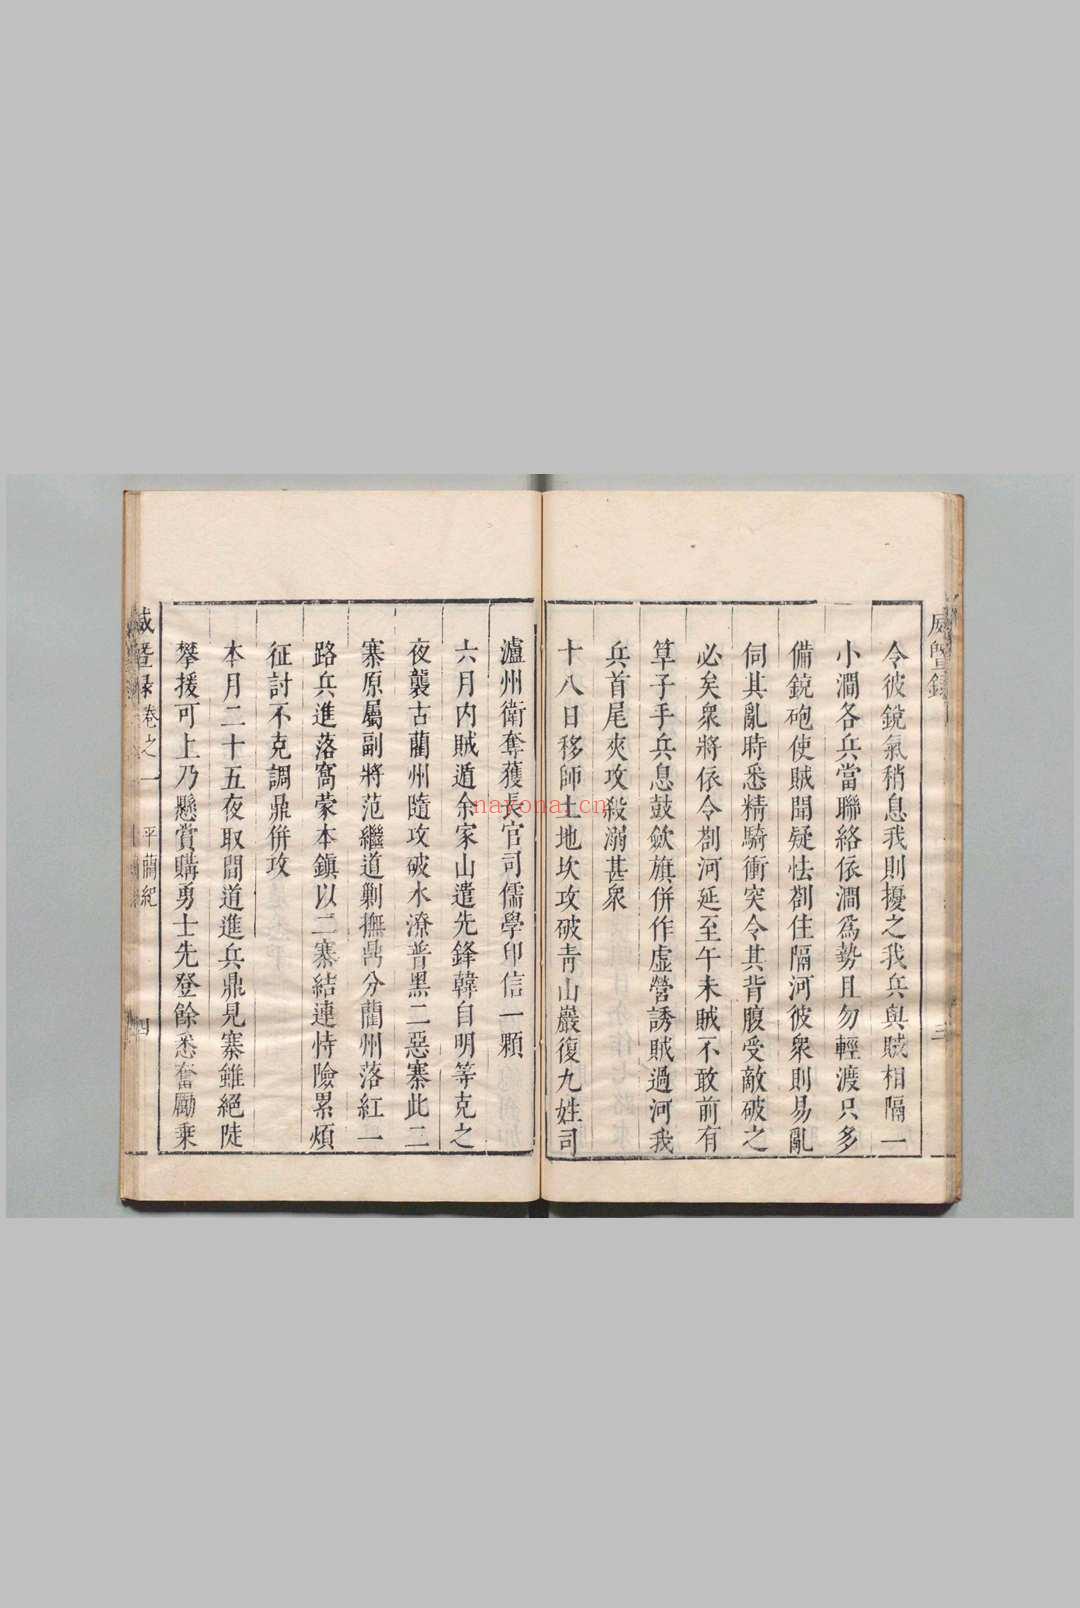 令彼鏡氣稍息我則擾之我兵與賊相隔一
小澗各兵當聯絡依澗爲勢且勿輕渡只多
備鏡砲使賊聞疑怯劄住隔河彼衆則易亂
伺其亂時悉精騎衝突令其背腹受敵破之
必矣衆將依令劄河延至午未賊不敢前有
筸子手兵息鼓歛旗併作虛營誘賊過河我
兵首尾夾攻殺溺甚衆
十八日移師土地坎攻破青山巖復九姓司
瀘州衛奪獲長官司儒學印信一顆
六月內賊遁余家山遣先鋒韓自明等克之
夜襲古藺州隨攻破水潦普黑二惡寨此二
寨原屬副將范繼道剿撫咼分藺州落紅一
路兵進落窩蒙本鎮以二寨結連恃險累煩
征討不克調鼎併攻
本月二十五夜取間道進兵鼎見寨雖絕陡
攀援可上乃懸賞購勇士先登餘悉奮勵乘
威暨錄卷之一
平藺紀
四
nayona.cn